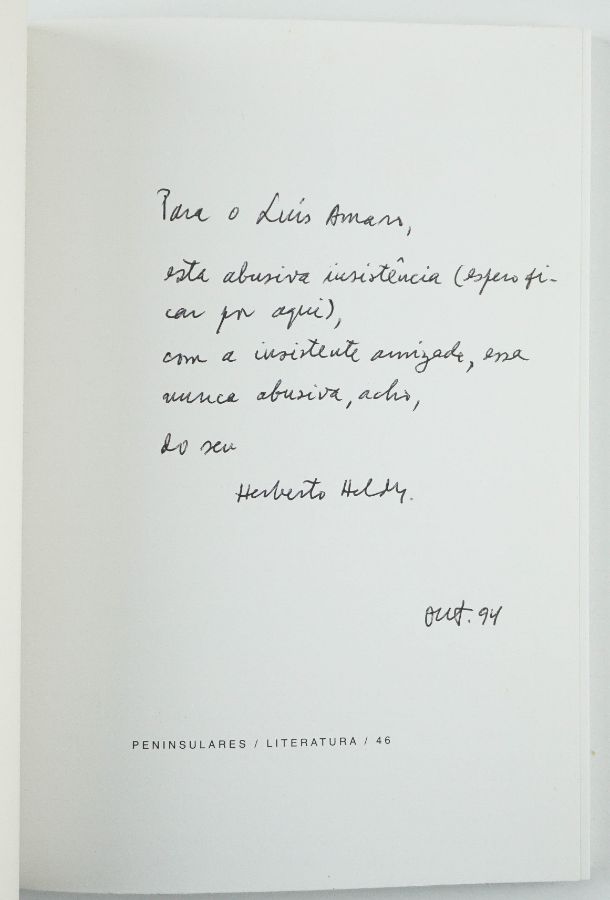 Para o Luís Amaro,
esta abusiva insistência (espero fi-
car por aqui),
com a insistente amizade, essa
nunca abusiva, acho,
do seu
Herberto Helder.
out. 94
PENINSULARES / LITERATURA / 46